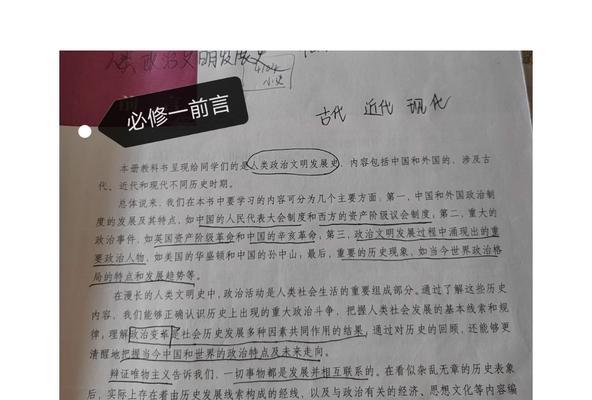 人类政治文明发展史
小史
前言
必修一前言
古代 近代 现代
本册教科书呈现给同学们的是人类政治文明发展史，内容包括中国和外国的，涉及古
代、近代和现代不同历史时期。
总体说来，我们在本书中要学习的内容可分为几个主要方面，第一，中国和外国政治制
度的发展及其特点，如中国的人民代表大会制度和西方的资产阶级议会制度，第二，重大的
政治事件，如英国资产阶级革命和中国的辛亥革命，第三，政治文明发展过程中涌现出的重
要政治人物，如美国的华盛顿和中国的孙中山；最后，重要的历史现象，如当今世界政治格
局的特点和发展趋势等。
在漫长的人类文明史中，政治活动是人类社会生活的重要组成部分。通过了解这些历史
内容，我们能够正确认识历史上出现的重大政治斗争，把握人类社会发展的基本线索和规
律，理解政治变革是社会历史发展多种因素共同作用的结果，通过对历史的回顾，还能够更
清醒地把握当今中国和世界的政治特点及未来走向。
辩证唯物主义告诉我们，一切事物都是发展并相互联系的。在看似杂乱无章的历史表象
后，实际上存在着由历史发展线索构成的经线，以及与政治有关的经济、思想文化等内容编